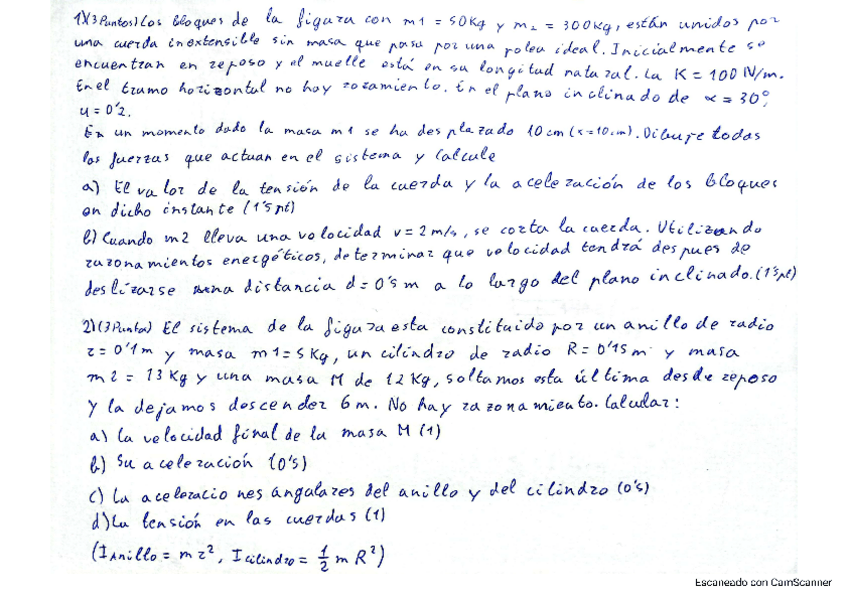 1)(3 Puntos) Los bloques de la figura con m1 = 50Kg y m2 = 300Kg, están unidos por
una cuerda inextensible sin masa que pasa por una polea ideal. Inicialmente se
encuentran en reposo y el muelle está en su longitud natural. La K = 100 N/m.
En el tramo horizontal no hay rozamiento. En el plano inclinado de α = 30°,
u = 0'2.
En un momento dado la masa m1 se ha desplazado 10 cm (x=10cm). Dibuje todas
las fuerzas que actuan en el sistema y Calcule
a) El valor de la tensión de la cuerda y la aceleración de los bloques
en dicho instante (1'5 pt)
b) Cuando m2 lleva una velocidad v = 2 m/s, se corta la cuerda. Utilizando
razonamientos energéticos, determinar que velocidad tendrá despues de
deslizarse una distancia d = 0's m a lo largo del plano inclinado. (1'5pt)
2)(3 Punto) El sistema de la figura esta constituido por un anillo de radio
r = 0'1m y masa m1 = 5 Kg, un cilindro de radio R = 0'15 m y masa
m2 = 13 Kg y una masa M de 12 Kg, soltamos esta última desde reposo
y la dejamos descender 6 m. No hay razonamiento. Calcular:
a) La velocidad final de la masa M (1)
b) Su aceleración (0's)
c) La aceleraciones angulares del anillo y del cilindro (0's)
d) La tensión en las cuerdas (1)
(I Anillo = m r², I cilindro = 1/2 m R²)
Escaneado con CamScanner